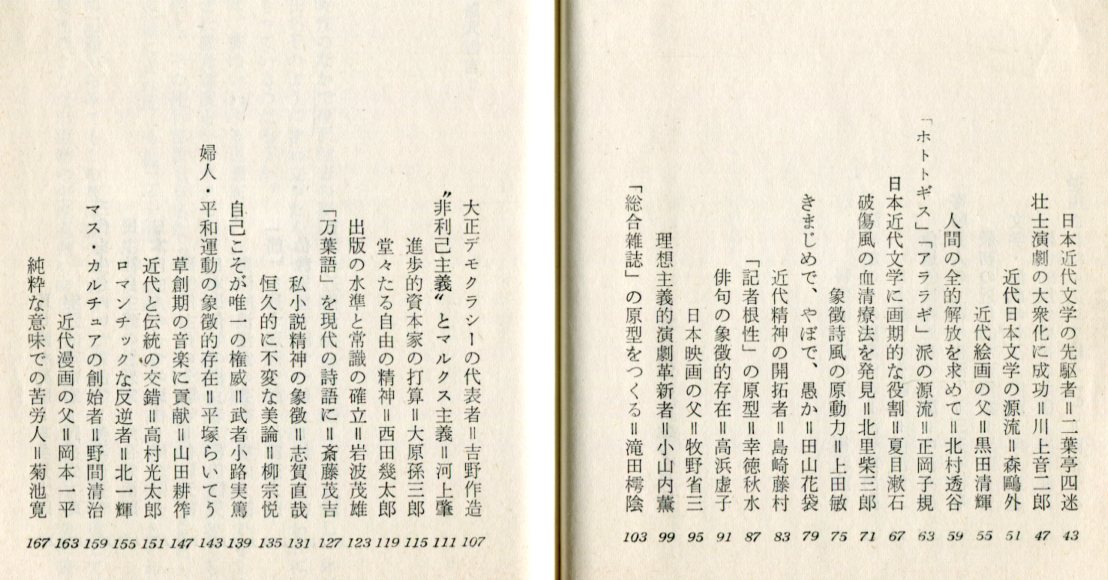 日本近代文学の先駆者＝二葉亭四迷 43
壮士演劇の大衆化に成功＝川上音二郎 47
近代日本文学の源流＝森鷗外 51
近代絵画の父＝黒田清輝 55
人間の全的解放を求めて＝北村透谷 59
「ホトトギス」「アララギ」派の源流＝正岡子規 63
日本近代文学に画期的な役割＝夏目漱石 67
破傷風の血清療法を発見＝北里柴三郎 71
象徴詩風の原動力＝上田敏 75
きまじめで、やぼで、愚か＝田山花袋 79
近代精神の開拓者＝島崎藤村 83
「記者根性」の原型＝幸徳秋水 87
俳句の象徴的存在＝高浜虚子 91
日本映画の父＝牧野省三 95
理想主義的演劇革新者＝小山内薫 99
「総合雑誌」の原型をつくる＝滝田樗陰 103
大正デモクラシーの代表者＝吉野作造 107
〝非利己主義〟とマルクス主義＝河上肇 111
進歩的資本家の打算＝大原孫三郎 115
堂々たる自由の精神＝西田幾太郎 119
出版の水準と常識の確立＝岩波茂雄 123
「万葉語」を現代の詩語に＝斎藤茂吉 127
私小説精神の象徴＝志賀直哉 131
恒久的に不変な美論＝柳宗悦 135
自己こそが唯一の権威＝武者小路実篤 139
婦人・平和運動の象徴的存在＝平塚らいてう 143
草創期の音楽に貢献＝山田耕筰 147
近代と伝統の交錯＝高村光太郎 151
ロマンチックな反逆者＝北一輝 155
マス・カルチュアの創始者＝野間清治 159
近代漫画の父＝岡本一平 163
純粋な意味での苦労人＝菊池寛 167